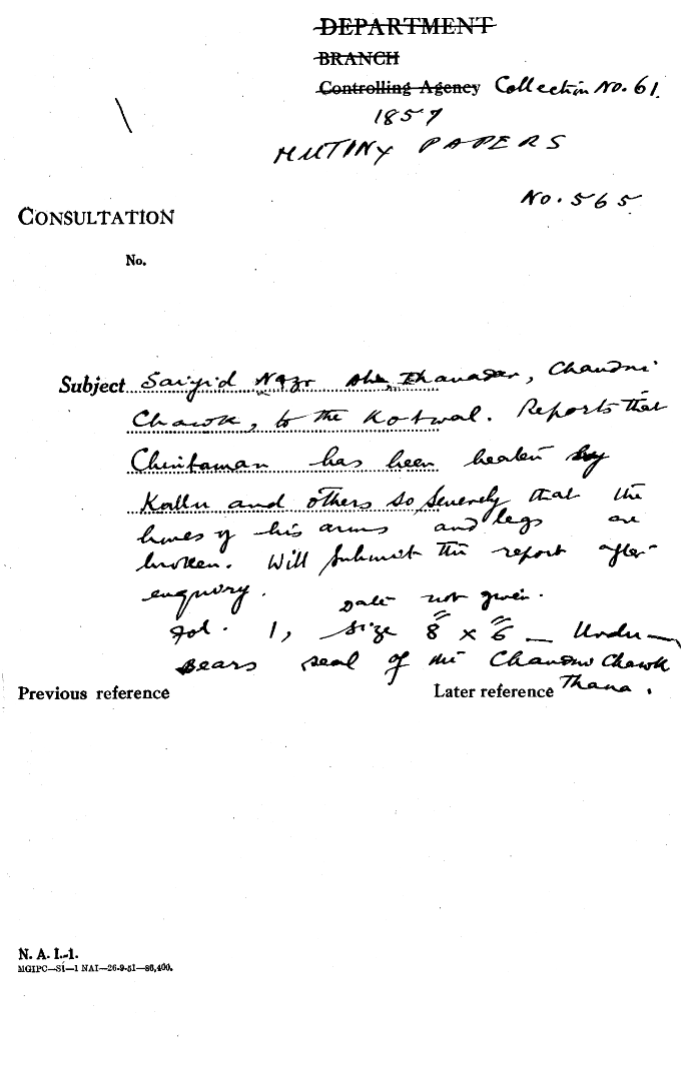 DEPARTMENT
BRANCH
Controlling Agency Collection No. 61.
1857
MUTINY PAPERS
No. 565
CONSULTATION
No.
Subject Saiyid Nazr Ali, Thanadar, Chandni
Chawk, to the Kotwal. Reports that
Chintaman has been beaten by
Kallu and others so severely that the
bones of his arms and legs are
broken. Will submit the report after
enquiry. Date not given.
Fol. 1, size 8" x 6" — Urdu —
Bears seal of the Chandni Chawk
Thana.
Previous reference Later reference
N. A. I.-1.
MGIPC—S1—1 NAI—26-9-51—86,400.